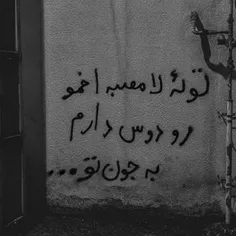 تو ئه لامصبه اخمو
رو دوس دارم
به جون تو...